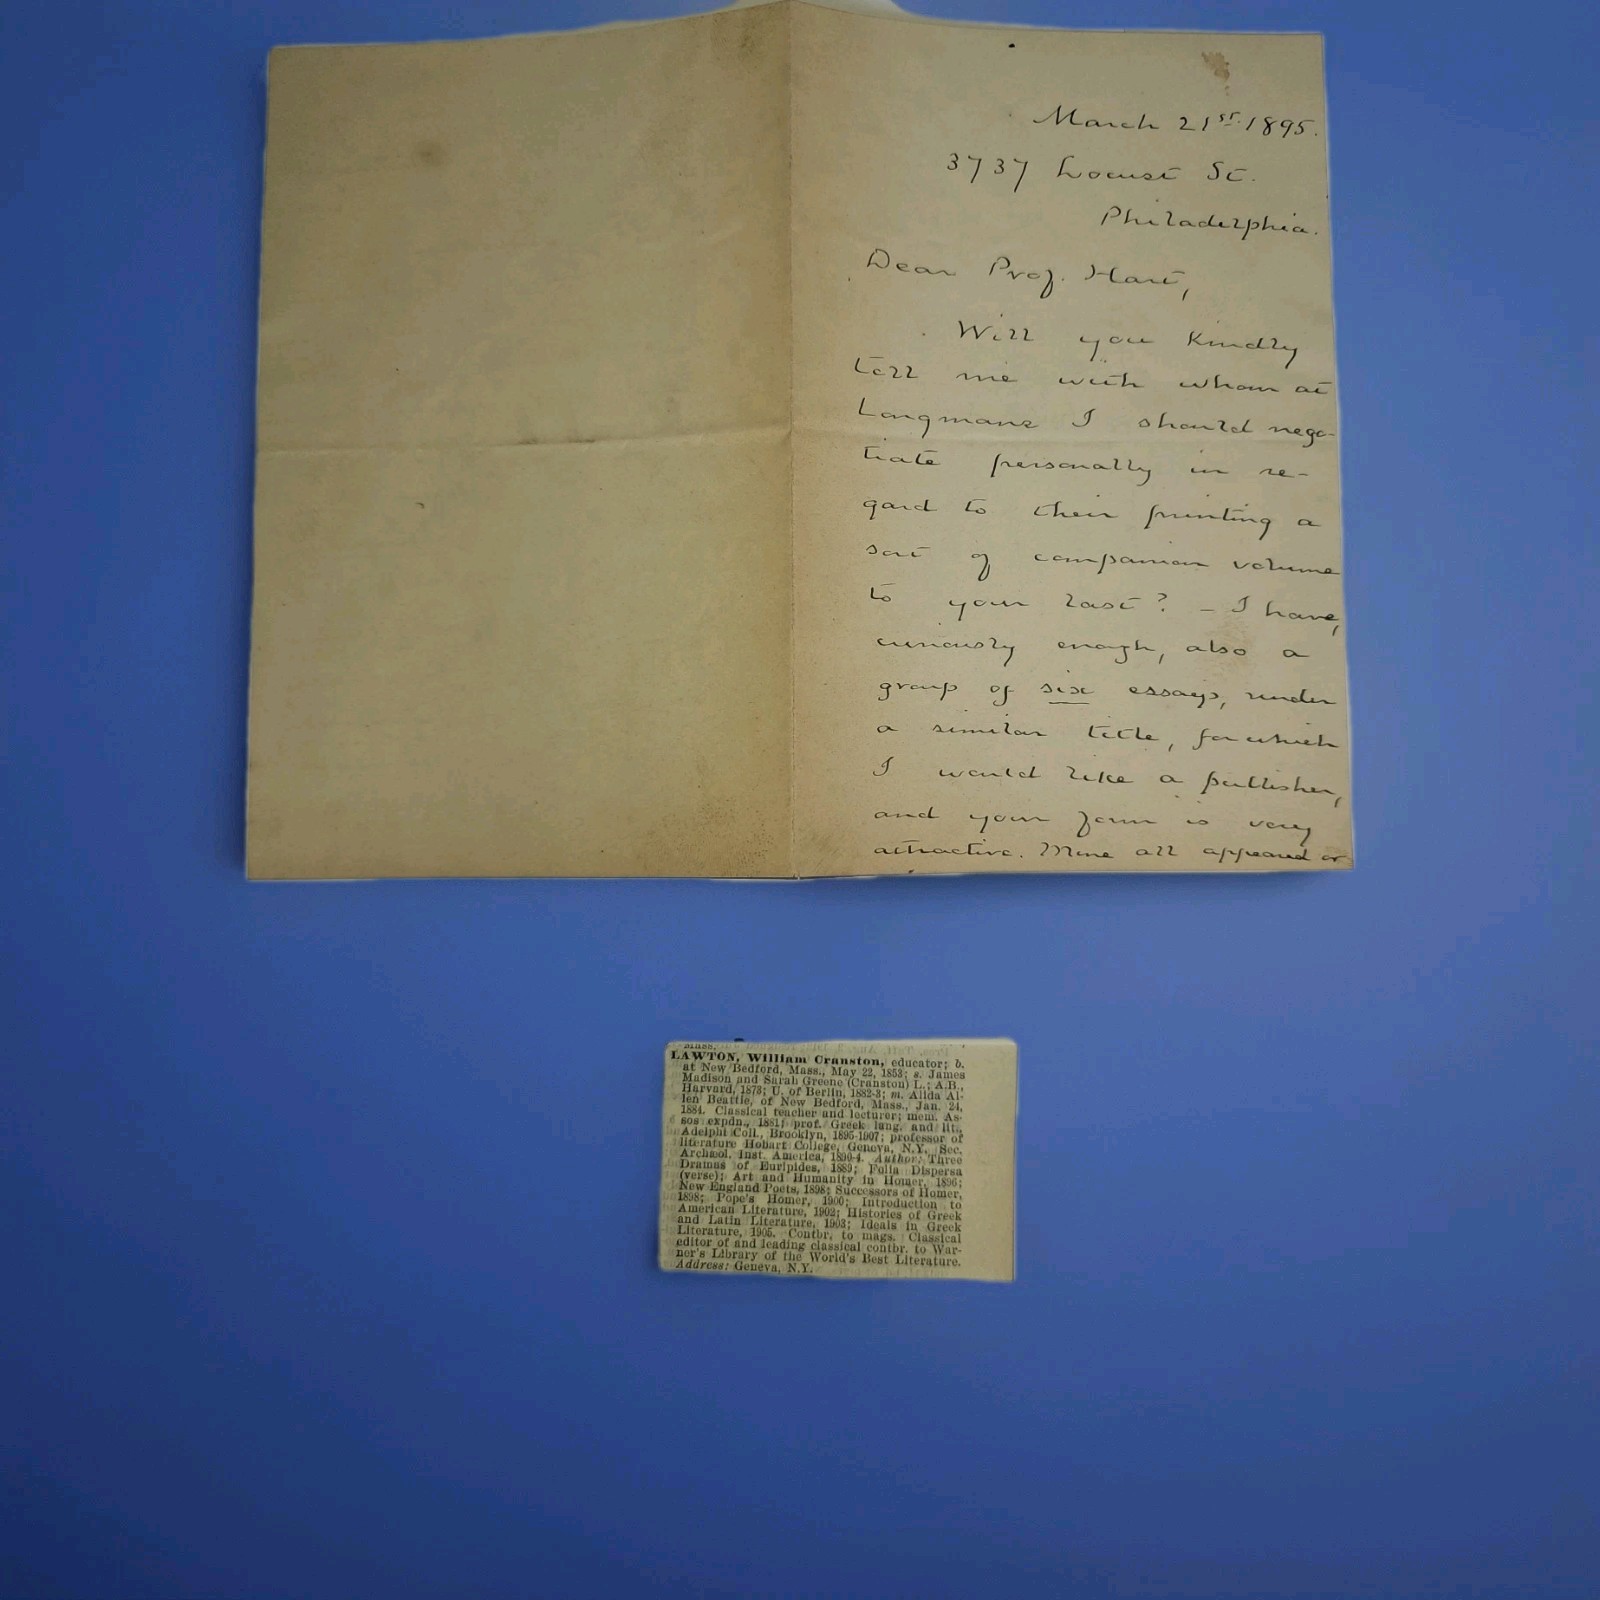 March 21st. 1895.
3737 Locust St.
Philadelphia.
Dear Prof. Hart,
Will you kindly
tell me with whom at
Longmans I should nego-
tiate personally in re-
gard to their printing a
sort of companion volume
to your last? – I have,
curiously enough, also a
group of six essays, under
a similar title, for which
I would like a publisher,
and your form is very
attractive. Mine all appeared or
Mass.
LAWTON, William Cranston, educator; b.
at New Bedford, Mass., May 22, 1853; s. James
Madison and Sarah Greene (Cranston) L.; A.B.,
Harvard, 1873; U. of Berlin, 1882-3; m. Alida Al-
len Beattie, of New Bedford, Mass., Jan. 24,
1884. Classical teacher and lecturer; mem. As-
sos expdn., 1881; prof. Greek lang. and lit.,
Adelphi Coll., Brooklyn, 1895-1907; professor of
literature Hobart College, Geneva, N.Y. Sec.
Archæol. Inst. America, 1890-4. Author: Three
Dramas of Euripides, 1889; Folia Dispersa
(verse); Art and Humanity in Homer, 1896;
New England Poets, 1898; Successors of Homer,
1898; Pope's Homer, 1900; Introduction to
American Literature, 1902; Histories of Greek
and Latin Literature, 1903; Ideals in Greek
Literature, 1905. Contbr. to mags. Classical
editor of and leading classical contbr. to War-
ner's Library of the World's Best Literature.
Address: Geneva, N.Y.